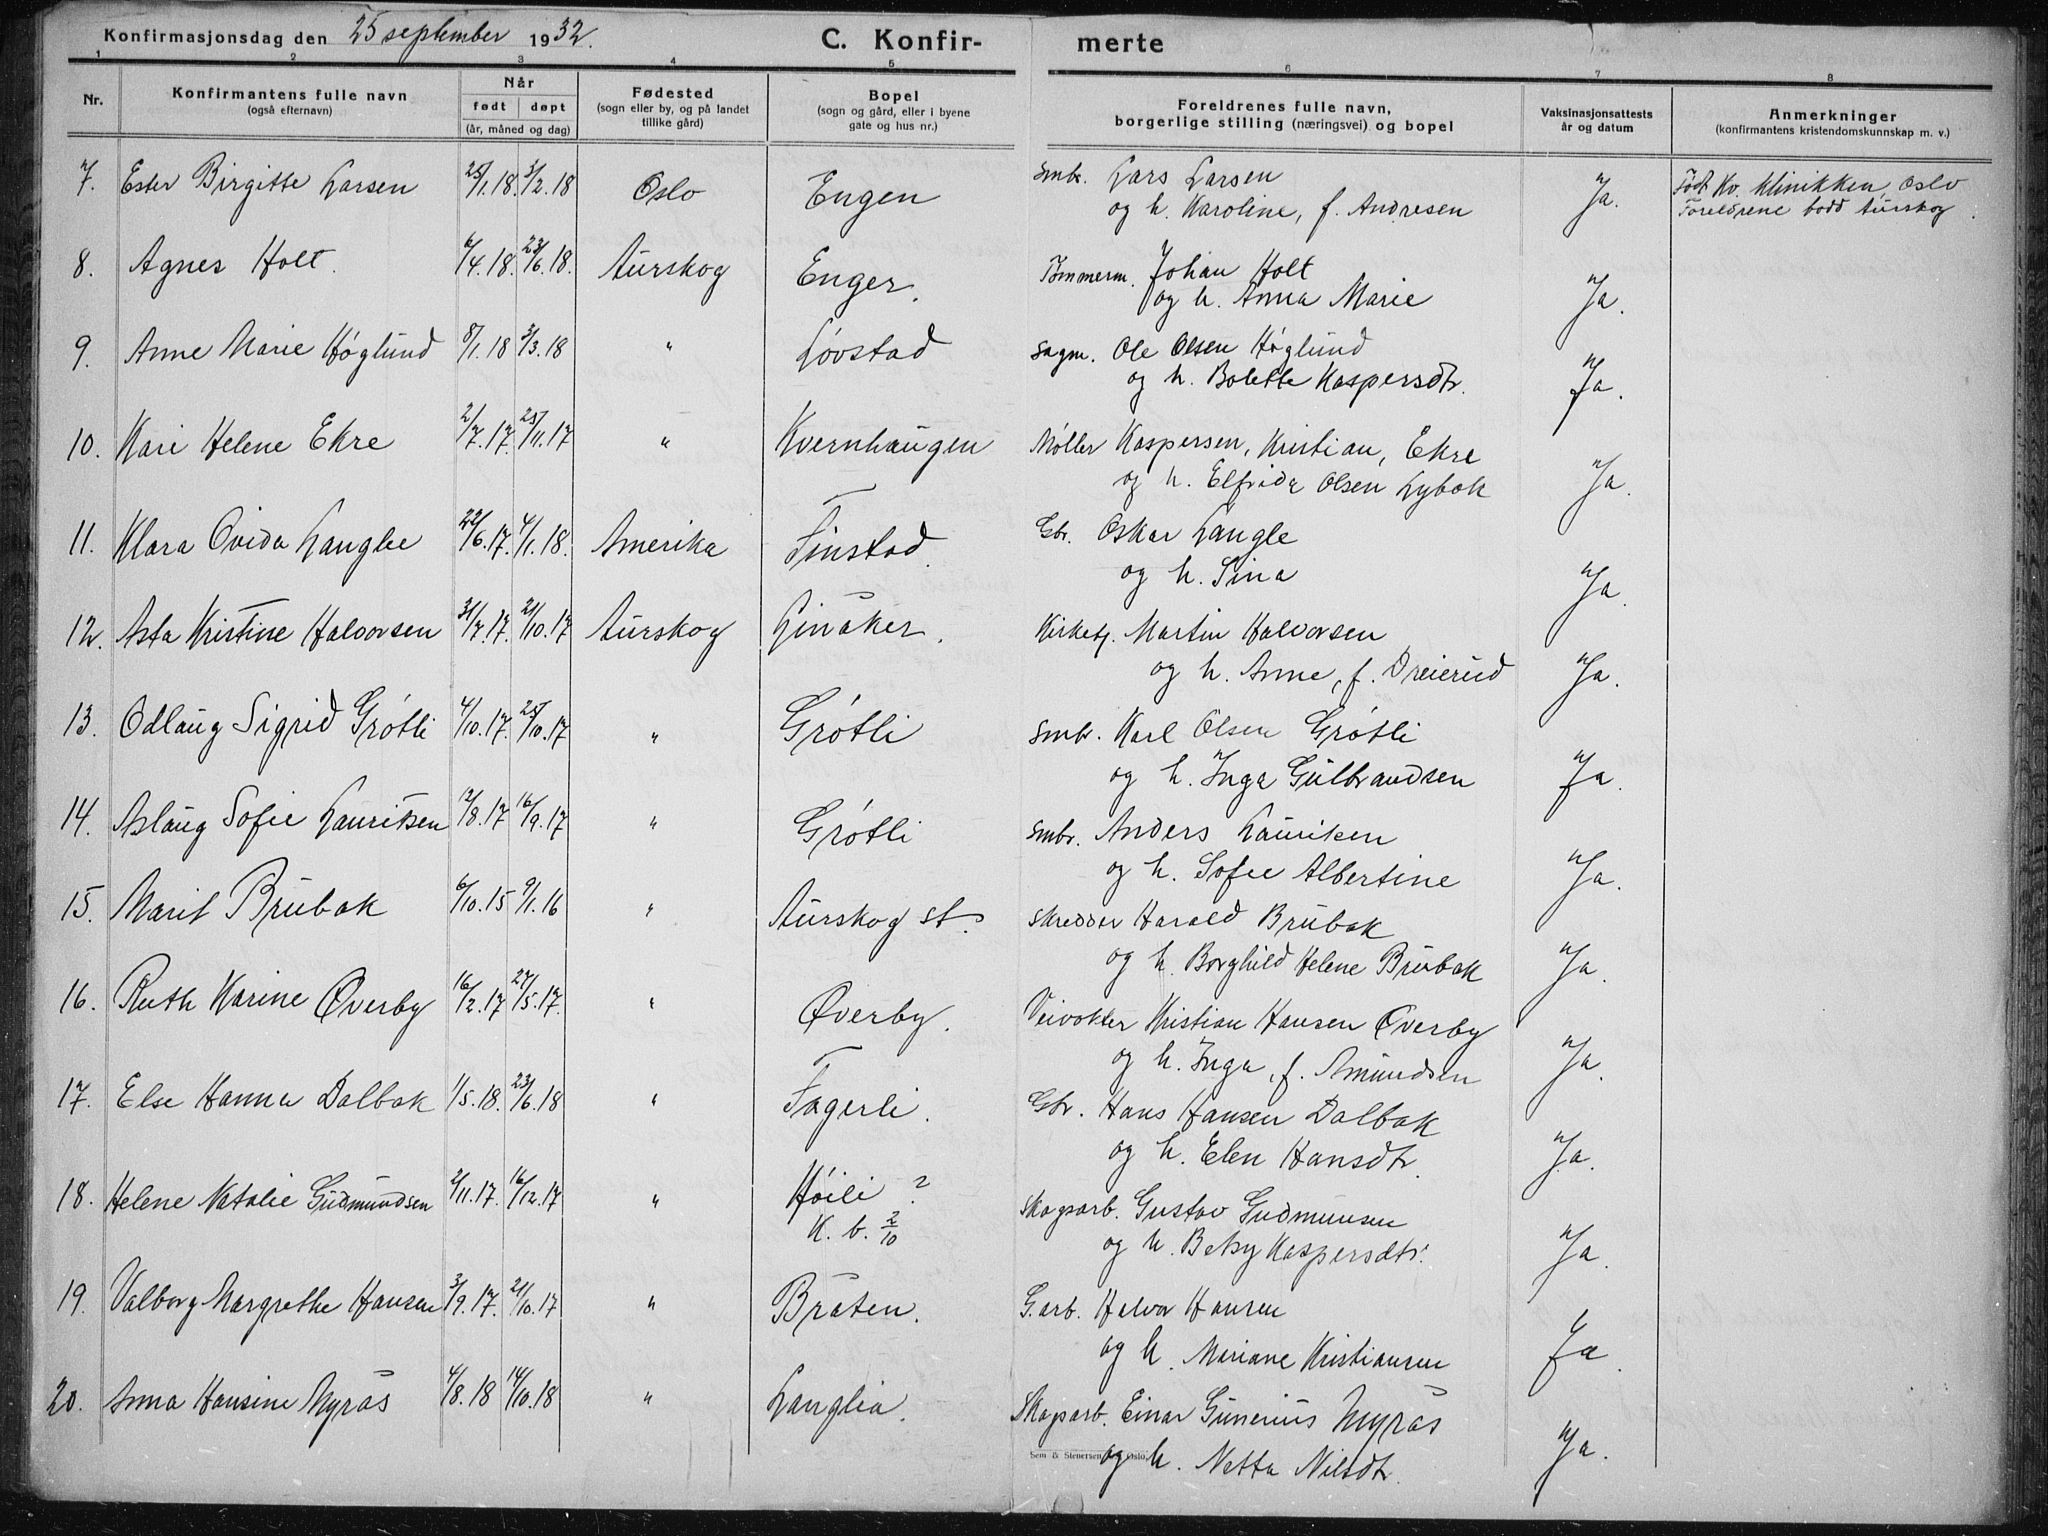 Konfirmasjonsdag den 25 september 1932. C. Konfir- merte
1 2 3 4 5 6 7 8
Nr. Konfirmantens fulle navn (også efternavn) Når født døpt (år, måned og dag) Fødested (sogn eller by, og på landet tillike gård) Bopel (sogn og gård, eller i byene gate og hus nr.) Foreldrenes fulle navn, borgerlige stilling (næringsvei) og bopel Vaksinasjonsattests år og datum Anmerkninger (konfirmantens kristendomskunnskap m. v.)
7. Ester Birgitte Larsen 25/1.18. 3/2.18 Oslo Engen Smbr. Lars Larsen Ja. Født Kv. Klinikken, Oslo
og h. Karoline, f. Andresen Foreldrene bodd Aurskog.
8. Agnes Holt. 6/4.18. 23/6.18. Aurskog Enger. Tømmerm. Johan Holt
og h. Anna Marie Ja.
9. Anne Marie Høglund 8/1.18 3/3.18 " Løvstad Sagm. Ole Olsen Høglund
og h. Bolette Kaspersdtr. Ja.
10. Kari Helene Ekre 2/7.17. 25/11.17 " Kvernhaugen Møller Kaspersen, Kristian, Ekre
og h. Elfrida Olsen Lybæk Ja.
11. Klara Ovida Langlie 22/6.17. 4/1.18. Amerika Finstad. Gbr. Oskar Langle
og h. Sina Ja.
12. Asta Kristine Halvorsen 31/7.17. 21/10.17 Aurskog Linåker. Kirketj. Martin Halvorsen
og h. Anne, f. Dreierud Ja.
13. Odlaug Sigrid Grøtli 4/10.17. 25/10.17 " Grøtli Smbr. Karl Olsen Grøtli
og h. Inga Gulbrandsen Ja.
14. Aslaug Sofie Lauritsen 12/8.17 16/9.17 " Grøtli Smbr. Anders Lauritsen
og h. Sofie Albertine Ja.
15. Marit Brubak 6/10.15 9/1.16 " Aurskog st. Skredder Harald Brubak
og h. Borghild Helene Brubak Ja.
16. Ruth Karine Øverby 16/2.17 27/5.17. " Øverby. Veivokter Kristian Hansen Øverby
og h. Inga, f. Amundsen Ja.
17. Else Hanna Dalbak 1/5.18. 23/6.18 " Fagerli. Gbr. Hans Hansen Dalbak
og h. Elen Hansdtr. Ja.
18. Helene Natalie Gudmundsen 2/11.17. 16/12.17 " Høili ? Skogsarb. Gustav Gudmunsen
K. b. 2/10 og h. Betsy Kaspersdtr. Ja.
19. Valborg Margrethe Hansen 3/9.17. 21/10.17 " Bråten. G.arb. Halvor Hansen
og h. Mariane Kristiansen Ja.
20. Anna Hansine Myrås 4/8.18 14/10.18 " Langlia. Skogsarb. Einar Gunerius Myrås
Sem & Stenersen Oslo.
og h. Netta Nilsdtr. Ja.